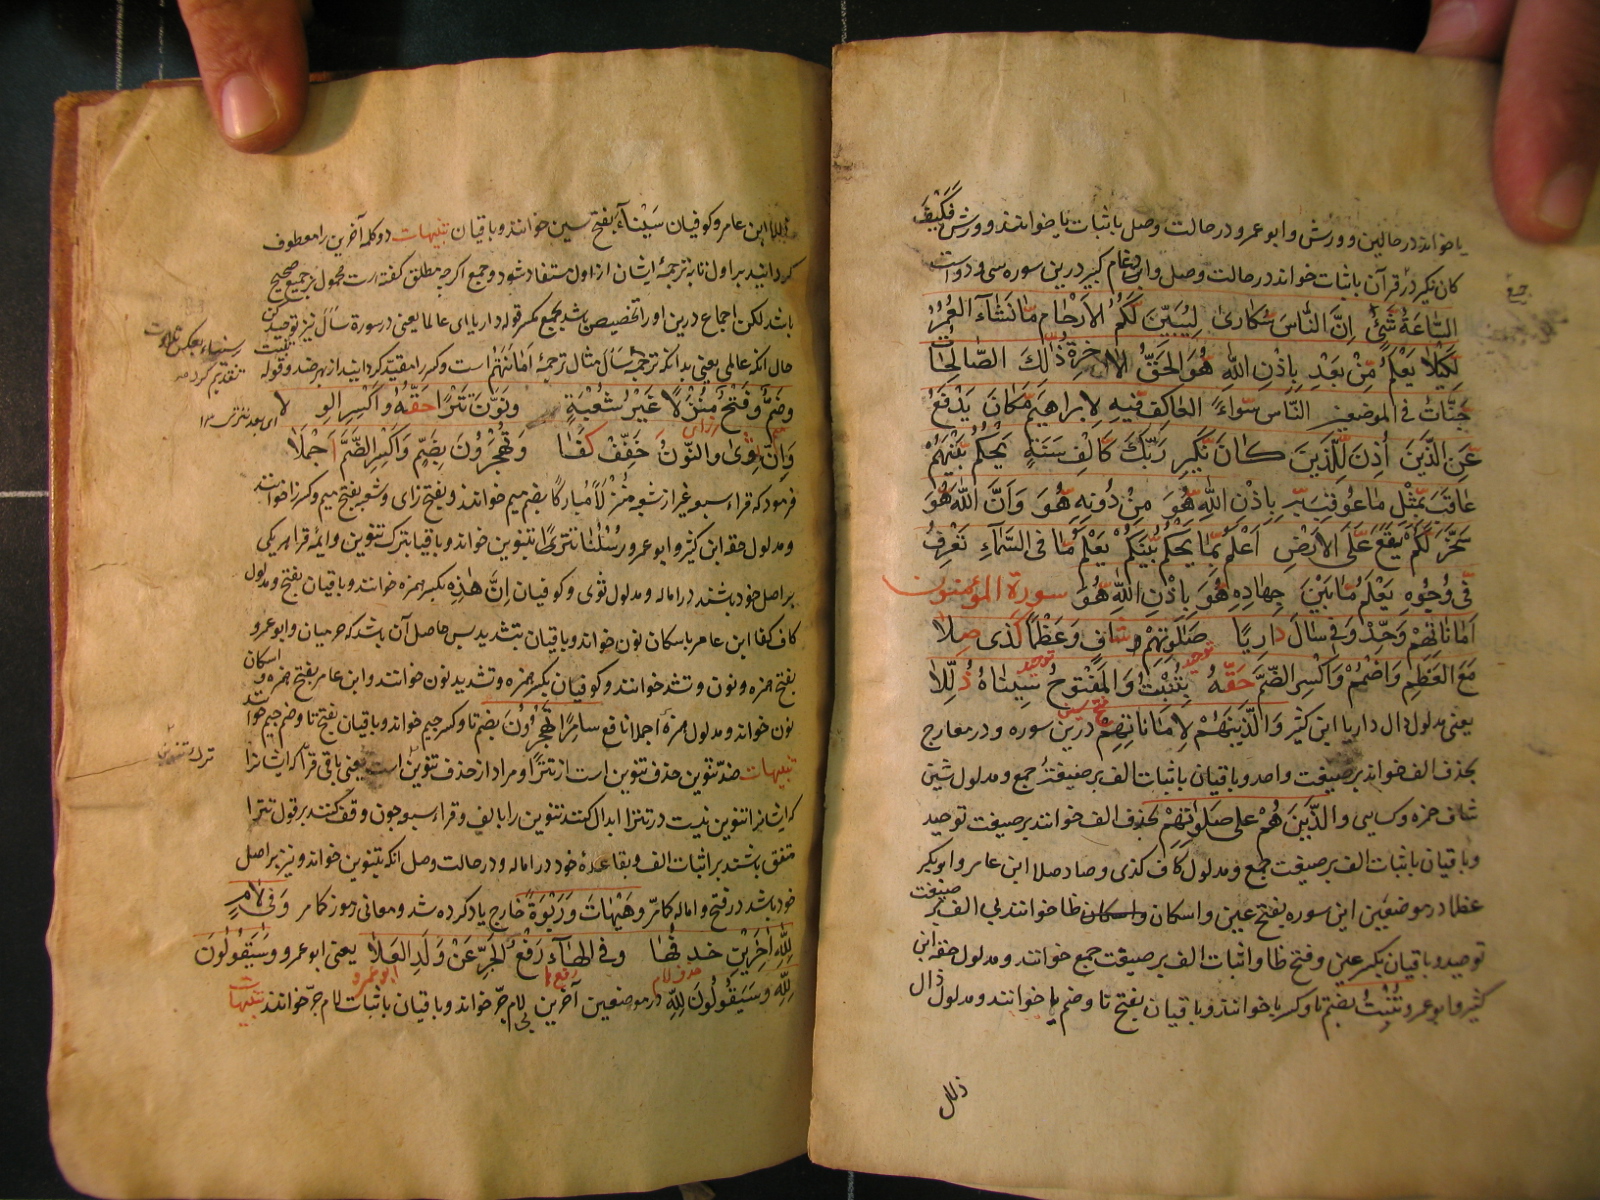 یا خواند در حالین و ورش و ابو عمرو در حالت وصل باثبات یا خوانند و ورش فَکَیْفَ
کان نکیر در قرآن باثبات خواند در حالت وصل و ادغام کبیر درین سوره سی و دوست
السَّاعَةُ شَيْءٌ إِنَّ النَّاسَ سُكَارَىٰ لِيُبَيِّنَ لَكُمُ الْأَرْحَامِ مَا نَشَاءُ الْعُمُرِ
لِكَيْلَا يَعْلَمَ مِنْ بَعْدِ بِإِذْنِ اللَّهِ هُوَ الْحَقُّ الْآخِرَةَ ذَٰلِكَ الصَّالِحَاتِ
جَنَّاتٍ في الموضعين النَّاسِ سَوَاءً الْعَاكِفُ فِيهِ لِإِبْرَاهِيمَ مَكَانَ يَدْفَعُ
عَنِ الَّذِينَ أُذِنَ لِلَّذِينَ كَانَ نَكِيرِ رَبِّكَ كَأَلْفِ سَنَةٍ يَحْكُمُ بَيْنَهُمْ
عَاقَبَ بِمِثْلِ مَا عُوقِبَ بِإِذْنِ اللَّهِ هُوَ مِنْ دُونِهِ هُوَ وَأَنَّ اللَّهَ هُوَ
سَخَّرَ لَكُمْ يَقَعَ عَلَى الْأَرْضِ أَعْلَمُ بِمَا يَحْكُمُ بَيْنَكُمْ يَعْلَمُ مَا فِي السَّمَاءِ تَعْرِفُ
فِي وُجُوهِ يَعْلَمُ مَا بَيْنَ جِهَادِهِ هُوَ بِإِذْنِ اللَّهِ هُوَ سورة المؤمنون
أَمَانَاتِهِمْ وَحِّدْ وَفِي سَالَ دَارِيًا صَلَوٰتِهِمْ شَافٍ وَعَظْمًا كَذِي صِلَا
توحید توحید
مَعَ الْعَظْمِ وَاضْمُمْ وَاكْسِرِ الضَّمَّ حَقُّهُ بِتُنْبِتُ وَالْمَفْتُوحُ سِينَاءَ ذُلِّلَا
یعنی مدلول دال داریا ابن کثیر وَالَّذِينَ هُمْ لِأَمَانَاتِهِمْ درین سوره و در معارج
بحذف الف خواند بر صیغت واحد و باقیان باثبات الف بر صیغت جمع و مدلول شین
شاف حمزه و کسایی وَالَّذِينَ هُمْ عَلَىٰ صَلَوٰتِهِمْ بحذف الف خوانند بر صیغت توحید
و باقیان باثبات الف بر صیغت جمع و مدلول کاف کذی و صاد صلا ابن عامر و ابوبکر
عظما در موضعین این سوره بفتح عین و اسکان ظا خوانند بی الف بر صیغت
توحید و باقیان بکسر عین و فتح ظا و اثبات الف بر صیغت جمع خوانند و مدلول حقه ابن
کثیر و ابو عمرو تُنْبِتُ بضم تا و کسر با خوانند و باقیان بفتح تا و ضم با خوانند و مدلول ذال
ذللا
ذللا ابن عامر و کوفیان سَيْنَاءَ بفتح سین خوانند و باقیان تنبیهات دو کلمه آخرین را معطوف
گردانید بر اول تا به ترجمهٔ ایشان از اول مستفاد شود و جمع اگرچه مطلق گفته است محمول بر جمع صحیح
باشد لکن اجماع درین او را تخصیص باشد بجمیع قوله داریا ای عالما یعنی در سورة سأل نیز توحید کن
حال آنکه عالمی یعنی بدانکه ترجمه سأل مثال ترجمهٔ أَمَانَاتِهِمْ است و کسر را مقید گردانید از بهر ضد و قوله
سیناء بعکس تلاوت تقدیم کرده
وَضَمٌّ وَفَتْحٌ مُنْزَلًا غَيْرُ شُعْبَةٍ وَنَوَّنَ تَتْرًا حَقُّهُ وَاكْسِرِ الْوِلَا
وَأَنَّ ثَوَىٰ وَالنُّونَ خَفِّفْ كَفَىٰ وَتُهْجِرُونَ بِضَمٍّ وَاكْسِرِ الضَّمَّ أَجْمَلَا
فرمود که قراء سبعه غیر از شعبه مُنْزَلًا مُبَارَكًا بضم میم خوانند و بفتح زای و شعبه بفتح میم و کسر زا خواند
و مدلول حقه ابن کثیر و ابو عمرو رُسُلَنَا تَتْرًى بتنوین خواند و باقیان بترک تنوین و ایمه قرا هر یکی
بر اصل خود باشند در اماله و مدلول ثوی و کوفیان إِنَّ هَٰذِهِ بکسر همزه خوانند و باقیان بفتح و مدلول
کاف کفا ابن عامر باسکان نون خواند و باقیان بتشدید پس حاصل آن باشد که حرمیان و ابو عمرو
بفتح همزه و نون و تشدید خوانند و کوفیان بکسر همزه و تشدید نون خوانند و ابن عامر بفتح همزه و اسکان
نون خواند و مدلول همزه اجملا نافع سَامِرًا تُهْجِرُونَ بضم تا و کسر جیم خواند و باقیان بفتح تا و ضم جیم خوانند
تنبیهات ضد تنوین حذف تنوین است از تترا و مراد از حذف تنوین است یعنی باقی قرا که ایشانرا
که ایشانرا تنوین نیست در تترا ابدال کنند تنوین را بالف و قراء سبعه چون وقف کنند بر قول تترا
متفق باشند بر اثبات الف و بقاعدهٔ خود در اماله و در حالت وصل آنکه بتنوین خواند و نیز بر اصل
خود باشد در فتح و اماله کما مرّ و هَيْهَاتَ وَرَبْوَةً خارج یاد کرده شد و معانی رموز کما مر وَفِي لَامِ
لِلَّهِ أَخِيرَيْنِ حَذْفُهَا وَفِي الْهَاءِ رَفْعُ الْجَرِّ عَنْ وَلَدِ الْعَلَا یعنی ابو عمرو وَسَيَقُولُونَ
حذف لام رفع ها ابو عمرو
لِلَّهِ وَسَيَقُولُونَ لِلَّهِ در موضعین آخرین بی لام جر خواند و باقیان باثبات لام جر خوانند تنبیهات